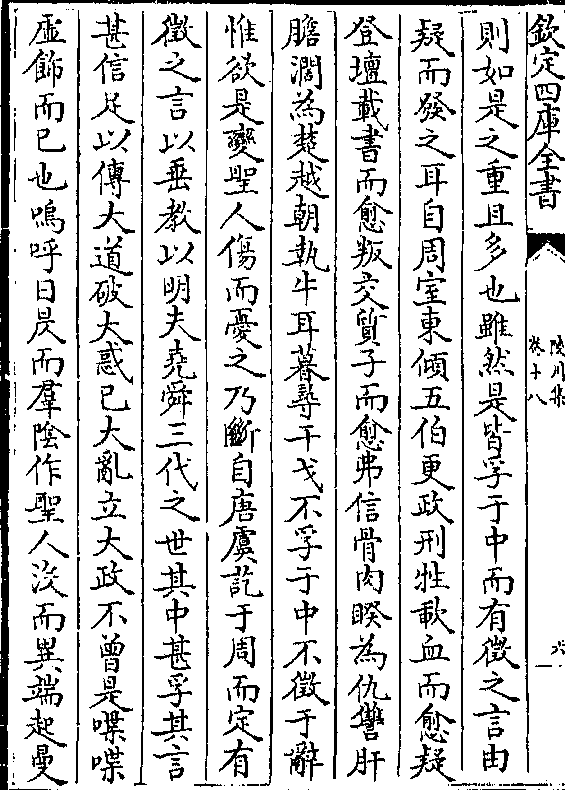 欽定四庫全書
陵川集
卷十八
六
則如是之重且多也雖然是皆孚于中而有徵之言由
疑而發之耳自周室東傾五伯更政刑牲歃血而愈疑
登壇載書而愈叛交質子而愈弗信骨肉睽為仇讐肝
膽濶為楚越朝執牛耳暮尋干戈不孚于中不徵于辭
惟欲是變聖人傷而憂之乃斷自唐虞訖于周而定有
徵之言以垂教以明夫堯舜三代之世其中甚孚其言
甚信足以傳大道破大惑已大亂立大政不曾是喋喋
虛飾而已也嗚呼日昃而羣陰作聖人沒而異端起曼